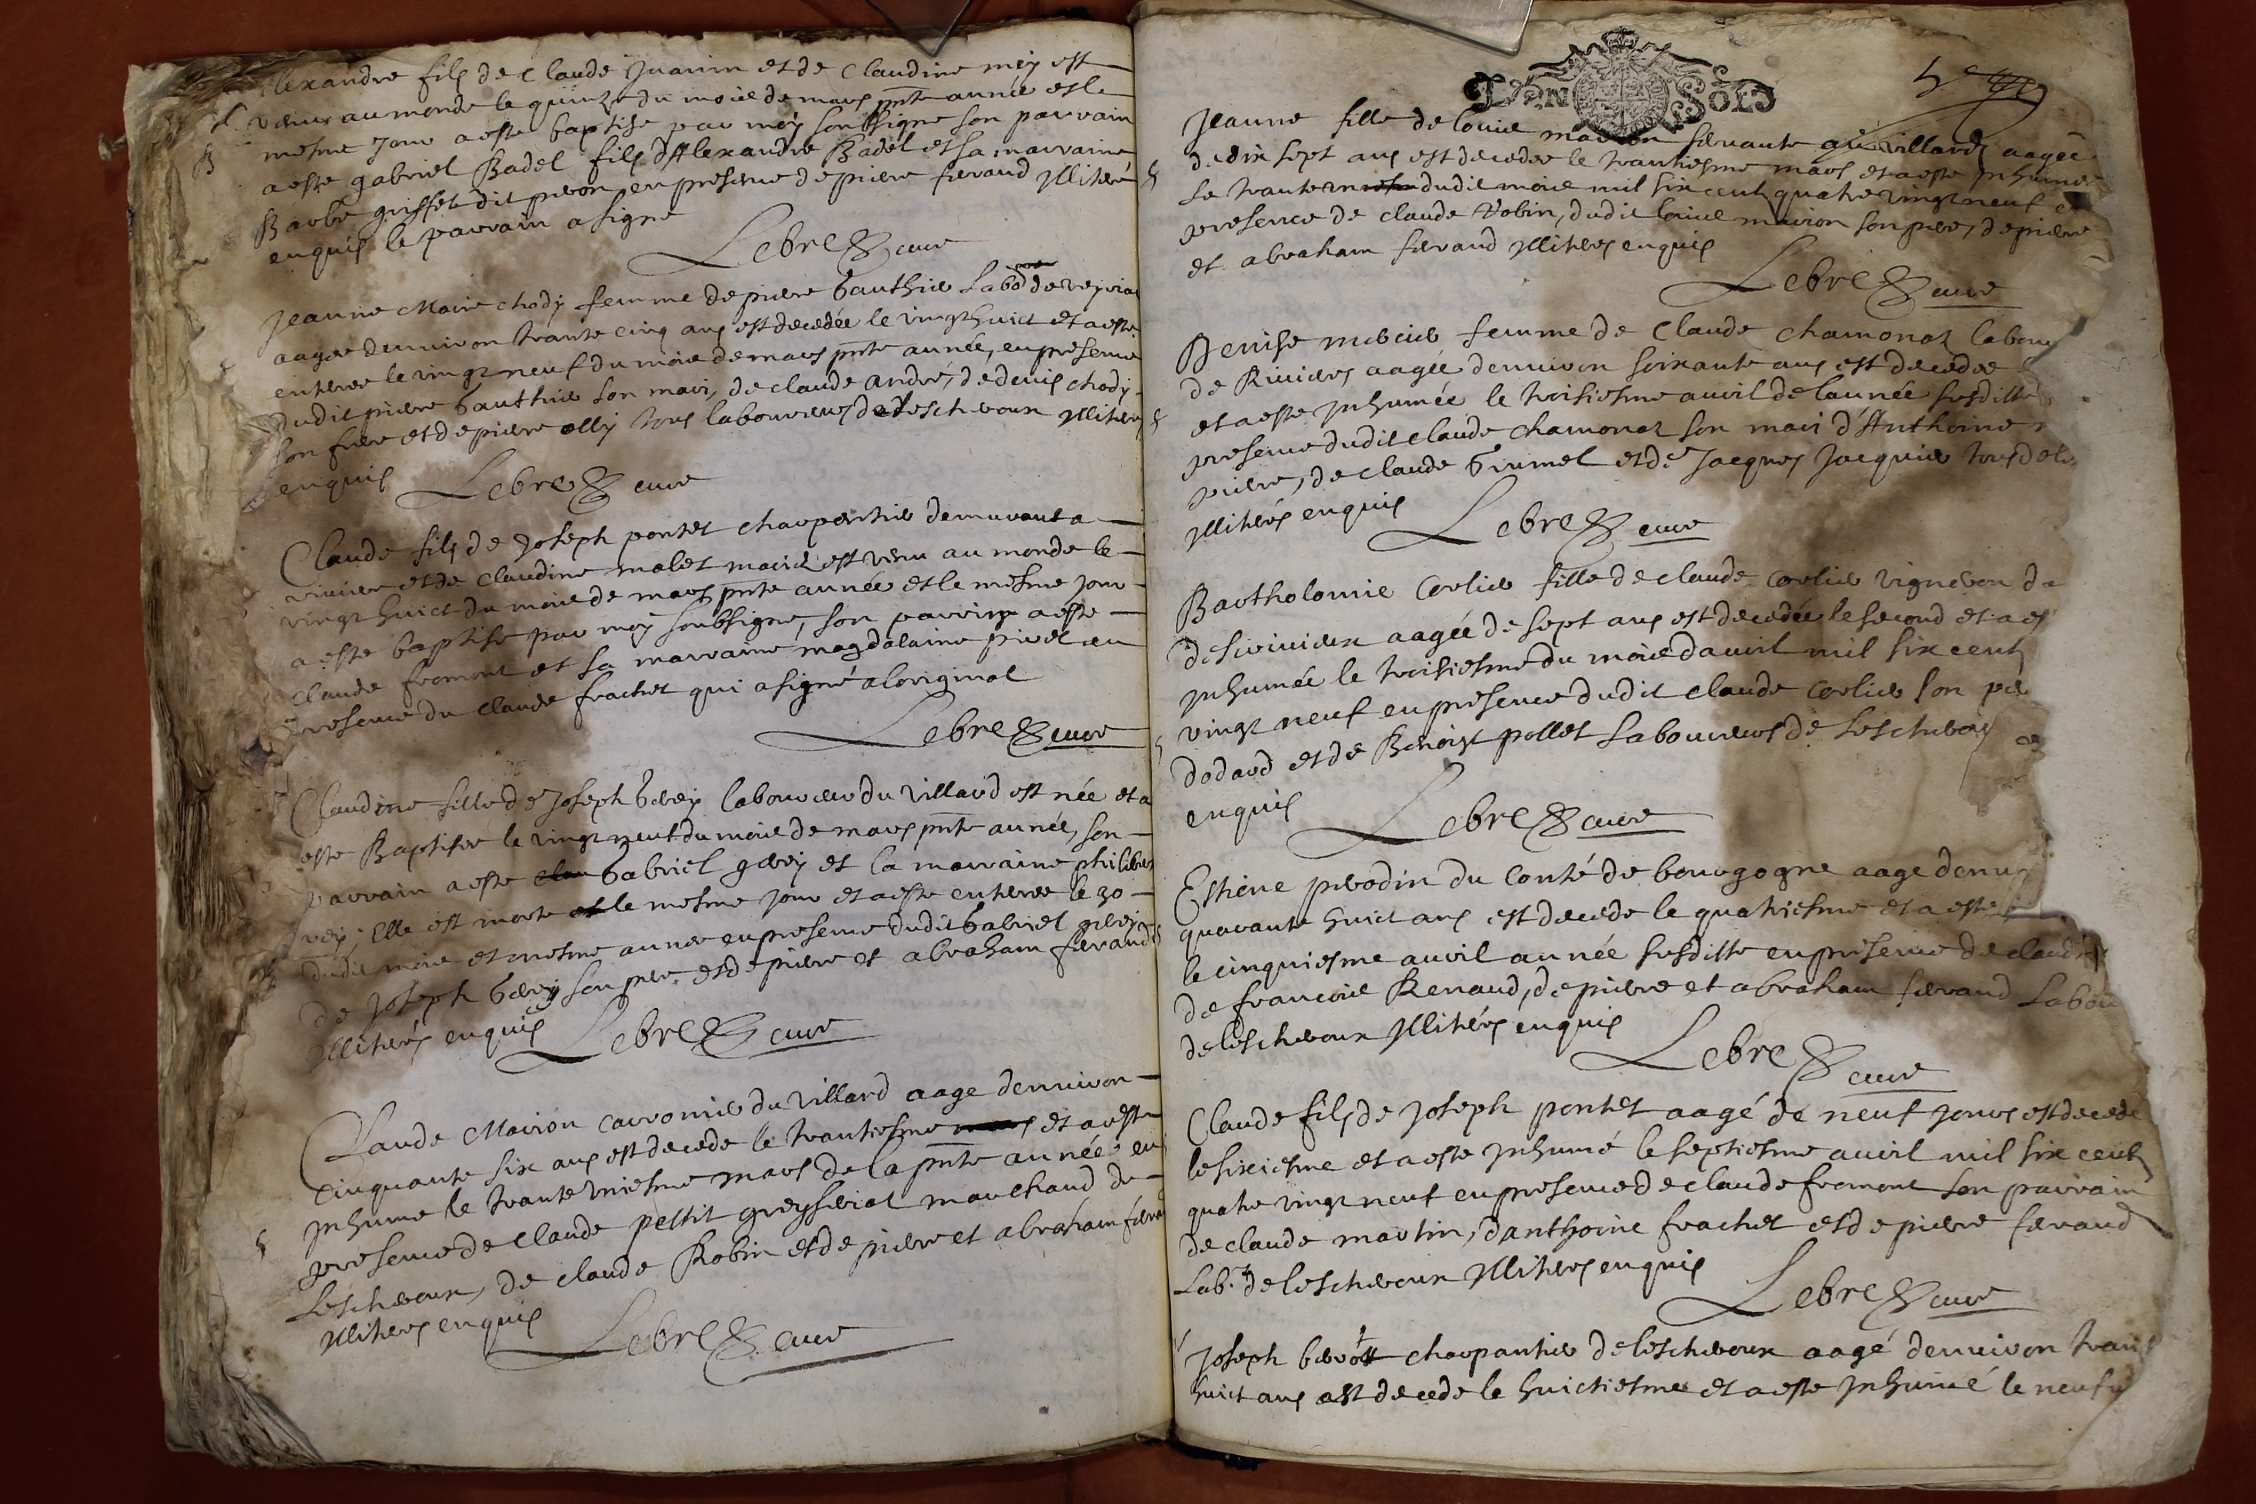 lexandre fils de Claude Juanin et de Claudine mey est
venu au monde le quinze du mois de mars pnte année et le
mesme jour a este baptise par moy soubsigne son parrain
a este gabriel Badel fils d'Alexandre Badel et sa marraine
Barbe griffet dit pieron en presence de pierre feraud illiteré
enquis le parrain a signe
Lebre cure
Jeanne Marie Chody femme de pierre Gauthie Labo de
aagee denuiron trante cinq ans est decedée le vingt huict et a este
enteree le vingt neuf du mois de mars pnte année, en presence
dudit pierre Gauthie son mari, de claude andre, de denis chody
son frere et de pierre olly tous laboureurs de Lescheroux illiters
enquis Lebre cure
Claude fils de Joseph pontet charpentie demeurant a
riviere et de Claudine molet maries est venu au monde le
vingt huict du mois de mars pnte année et le mesme jour
a este baptise par moy soubsigne, son parrin a este
Claude fromont et sa marraine magdalaine pivet en
presence du claude frachet qui a signé a loriginal
Lebre cure
Claudine fille de Joseph Gerey laboureur du villard est née et a
este Baptisee le vingt neuf du mois de mars pnte année, son
parrain a este Gabriel gerey et la marraine philibert
rey; Elle est morte le mesme jour et a este enteree le 30
dudit mois et mesme annee en presence dudit Gabriel gerey
de Joseph Gerey son pere et de pierre et abraham feraud
illiterés enquis Lebre cure
Claude Marion carronie du villard aage denuiron
cinquante six ans est decede le trantiesme et a este
inhume le trante uniesme mars de la pnte année en
presence de Claude pettit greyseriat marchand de
Lescheroux, de claude Robin et de pierre et abraham feraud
illiters enquis Lebre cure
DEN SOLS
Jeanne fille de louis marion servante au villard aagée
de dix sept ans est decedee le trantiesme mars et a este inhumée
le trante un dudit mois mil six cent quatre vingt neuf en
presence de claude Robin, dudit louis marion son pere, de pierre
et abraham feraud illiters enquis
Lebre cure
Denise mercier femme de Claude chamonat labou
de Rivieres aagée denuiron soixante ans est decedee
et a este inhumée le troisiesme auril de lannée susditte
presence dudit claude chamonat son mari d'Anthoine
pierre, de claude Grumel et de Jacques Jacquier tous de
illiterés enquis Lebre cure
Bartholomie Corlie fille de claude Corlie vigneron de
descirivieux aagée de sept ans est decedée le second et a es
inhumée le troisiesme du mois dauril mil six cent
vingt neuf en presence dudit claude Corlie son pe
dodard et de Benoist pollet Laboureurs de Lescherou
enquis Lebre cure
Estiene prodin du Conté de bourgogne aage denui
quarante huict ans est decede le quatriesme et a este
le cinquiesme auril année susditte en presence de claude
de francois Renaud, de pierre et abraham feraud Labou
de Lescheroux illiterés enquis
Lebre cure
Claude fils de Joseph pontet aagé de neuf jours est decede
le sixiesme et a este inhumé le septiesme auril mil six cent
quatre vingt neuf en presence de claude fromont son parrain
de claude martin, danthoine frachet et de pierre feraud
Lab.r de Lescheroux illiters enquis
Lebre cure
Joseph charpantie de Lescheroux aagé denuiron trant
huict ans est decede le huictiesme et a este inhumé le neufu